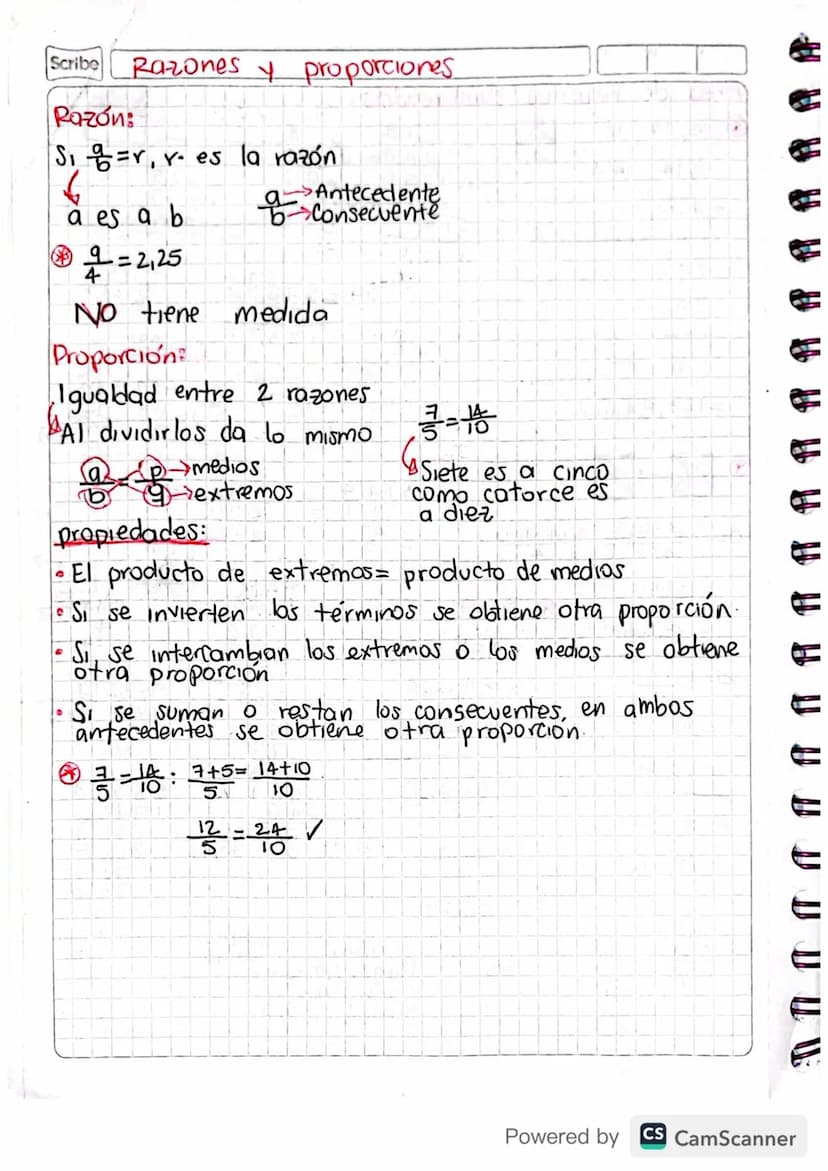 Scribe Razones y proporciones
Razón:
Si a/b = r, r. es la razón
a es a b
a → Antecedente
b → Consecuente
* 9/4 = 2,25
NO tiene medida
Proporción:
Igualdad entre 2 razones
Al dividirlos da lo mismo
a/b = p/q → medios
→ extremos
7/5 = 14/10
Siete es a cinco
como catorce es
a diez
propiedades:
• El producto de extremos = producto de medios
• Si se invierten los términos se obtiene otra proporción.
• Si se intercambian los extremos o los medios se obtiene
otra proporción
• Si se suman o restan los consecuentes, en ambos
antecedentes se obtiene otra proporción.
* 7/5 = 14/10 : 7+5/5 = 14+10/10
12/5 = 24/10 ✓
Powered by CS CamScanner